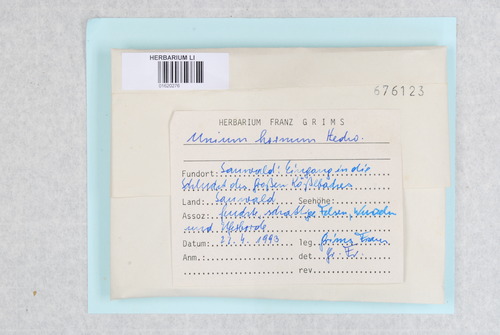 HERBARIUM LI
01620278
676123
HERBARIUM FRANZ GRIMS
Mnium hornum Hedw.
Fundort: Sauwald: Eingang in die
Schlucht des großen Kößlbaches
Land: Sauwald Seehöhe:
Assoz: feucht schattige Felsen, Wurzeln
und
Datum: 4. 1993 leg. Grims Franz
Anm.: det. Gr. Fr.
rev.